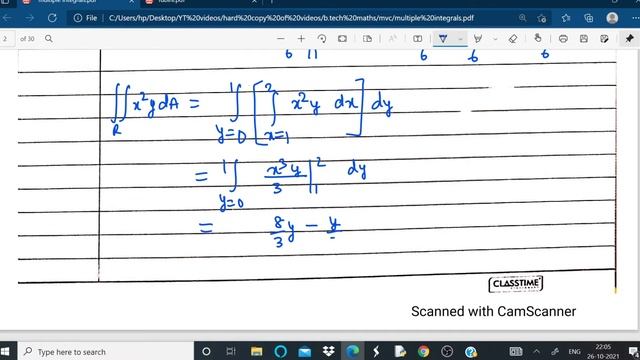 multiple integrals.pdf
File | C:/Users/hp/Desktop/YT%20videos/hard%20copy%20of%20videos/b.tech%20maths/mvc/multiple%20integrals.pdf
2 of 30
6 11 6 6 6
∬_R x²y dA = ∫_{y=0}^{1} [ ∫_{x=1}^{2} x²y dx ] dy
= ∫_{y=0}^{1} x³y/3 |_1^2 dy
= 8/3 y - y/
CLASSTIME
Scanned with CamScanner
Type here to search
22:05
26-10-2021